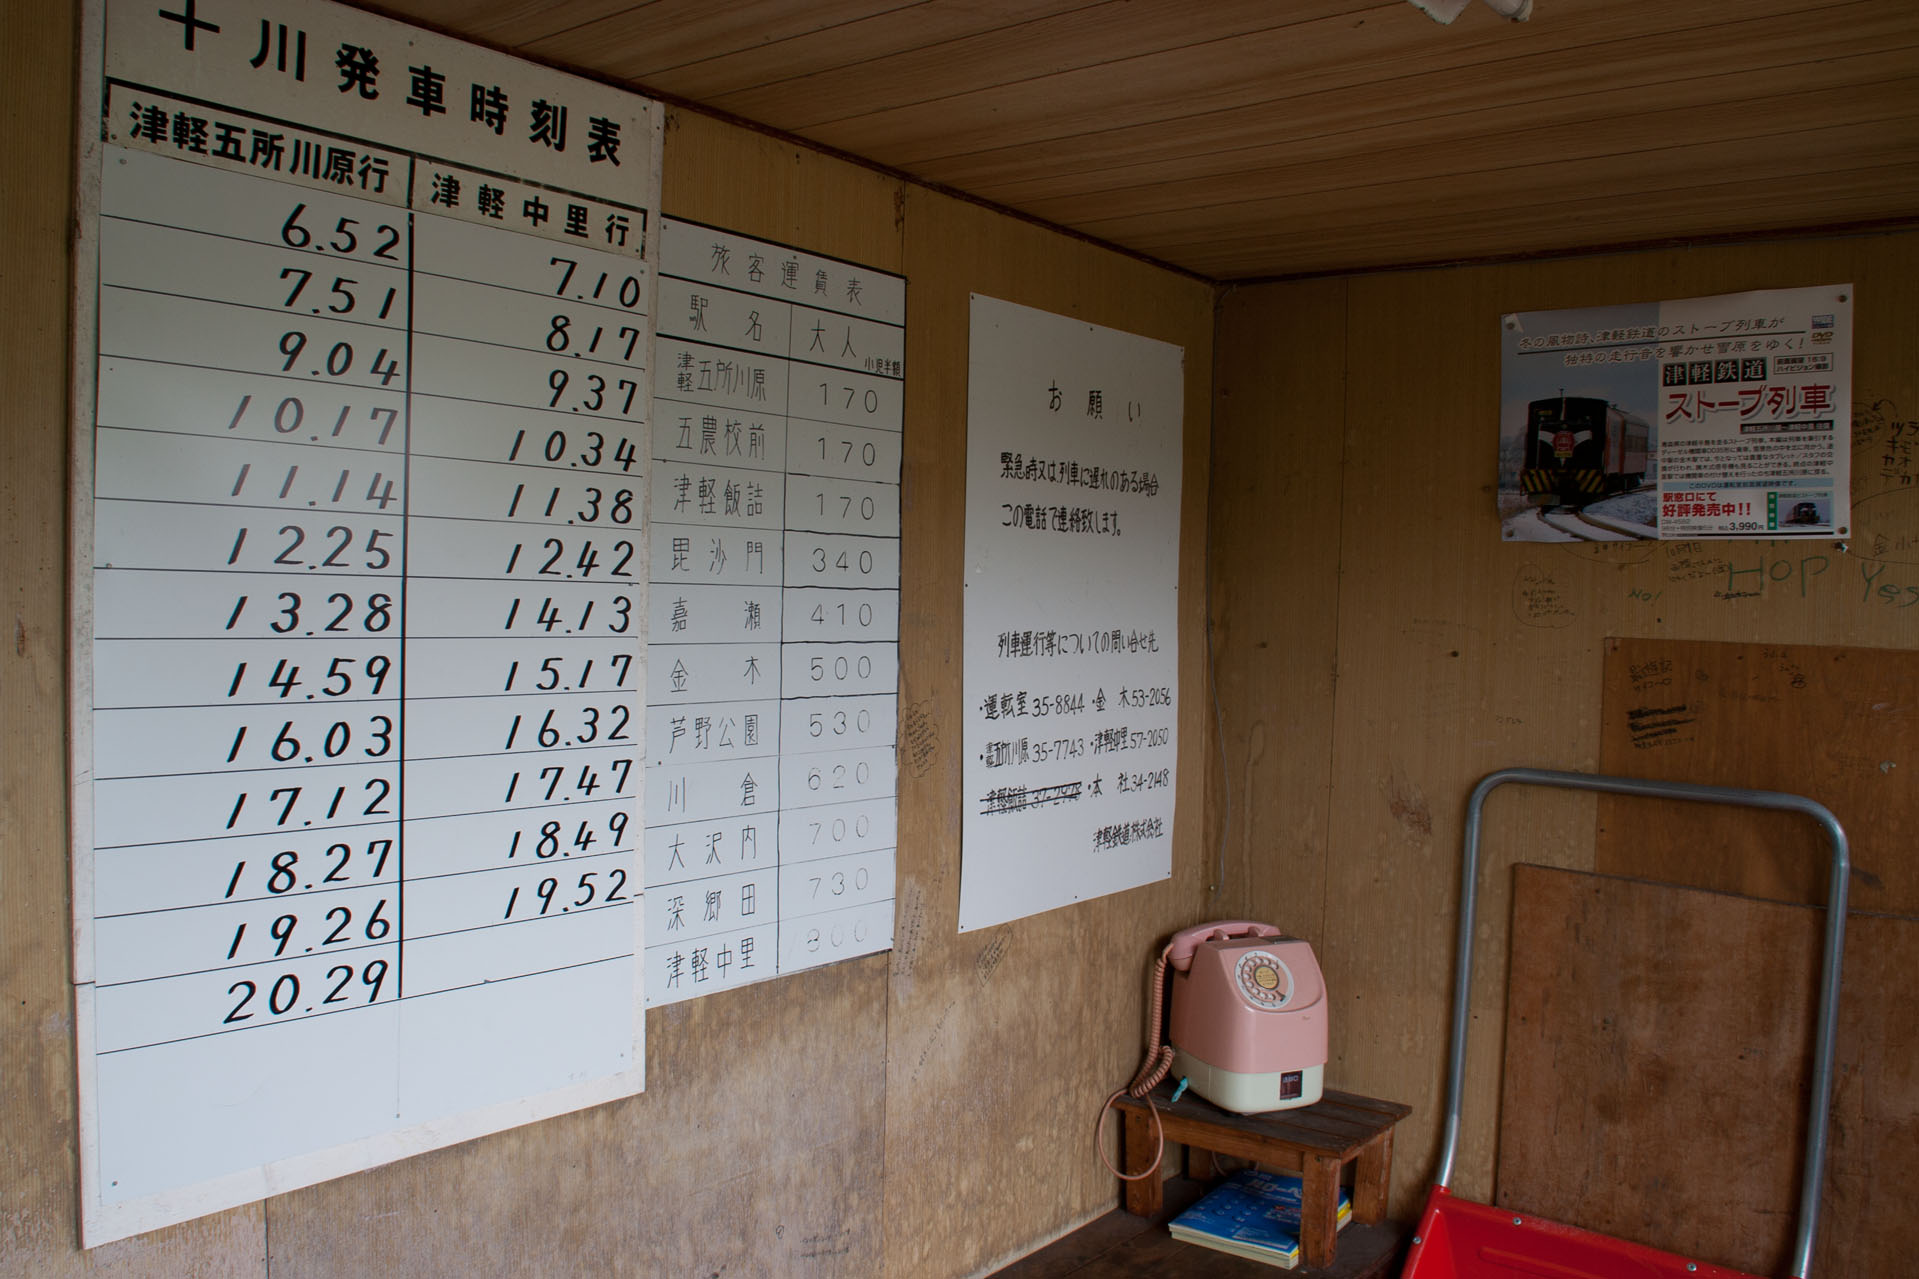 十川発車時刻表
津軽五所川原行 津軽中里行
6.52 7.10
7.51 8.17
9.04 9.37
10.17 10.34
11.14 11.38
12.25 12.42
13.28 14.13
14.59 15.17
16.03 16.32
17.12 17.47
18.27 18.49
19.26 19.52
20.29
旅客運賃表
駅名 大人 小児半額
津軽五所川原 170
五農校前 170
津軽飯詰 170
毘沙門 340
嘉瀬 410
金木 500
芦野公園 530
川倉 620
大沢内 700
深郷田 730
津軽中里 800
お願い
緊急時又は列車に遅れのある場合
この電話で連絡致します。
列車運行等についての問い合せ先
・運転室35-8844 ・金木53-2056
・津軽五所川原35-7743 ・津軽中里57-2050
津軽飯詰 37-2928 ・本社34-2148
津軽鉄道株式会社
冬の風物詩、津軽鉄道のストーブ列車が
独特の走行音を響かせ雪原をゆく!
DVD
津軽鉄道
ストーブ列車
津軽五所川原〜津軽中里 往復
駅窓口にて
好評発売中!!
3,990円
HOP Yes
NO!